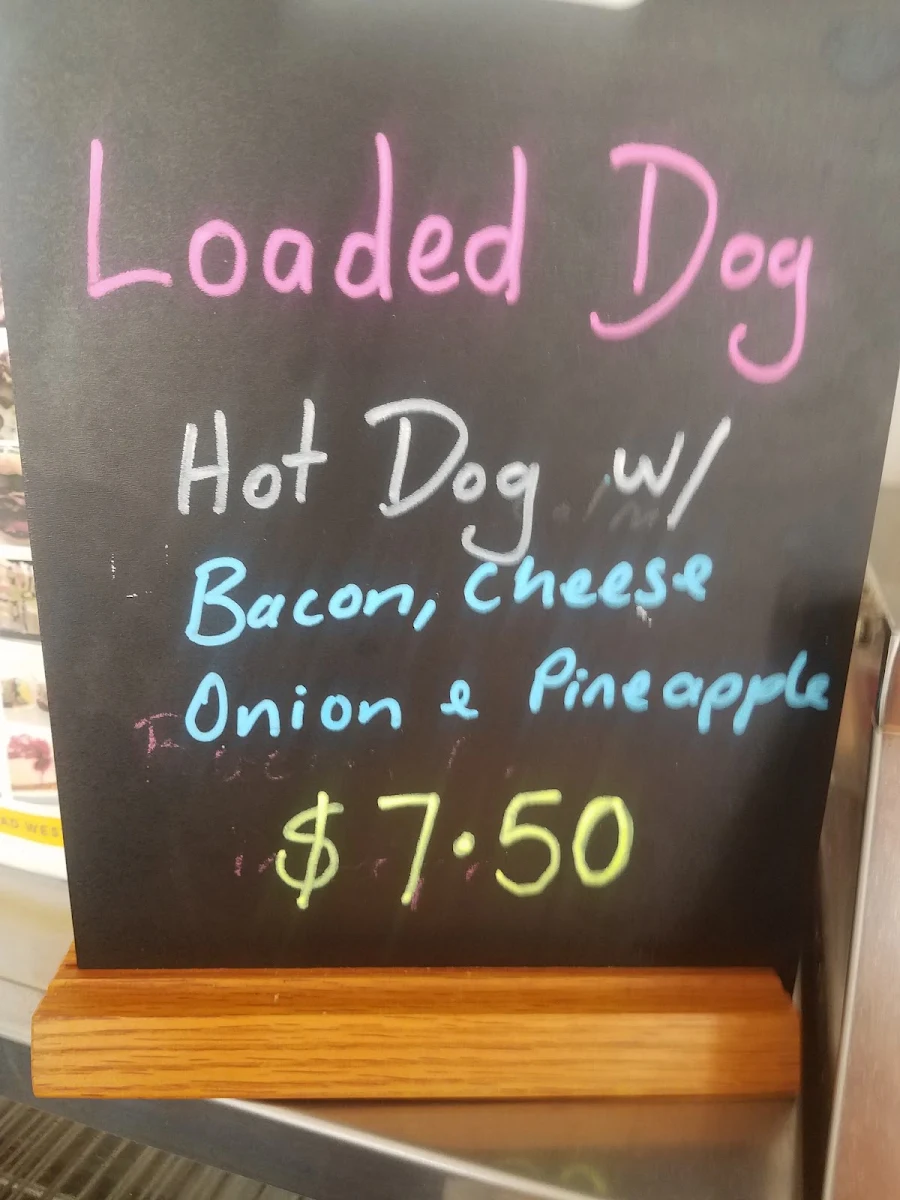 Loaded Dog
Hot Dog w/
Bacon, Cheese
Onion & Pineapple
$7.50